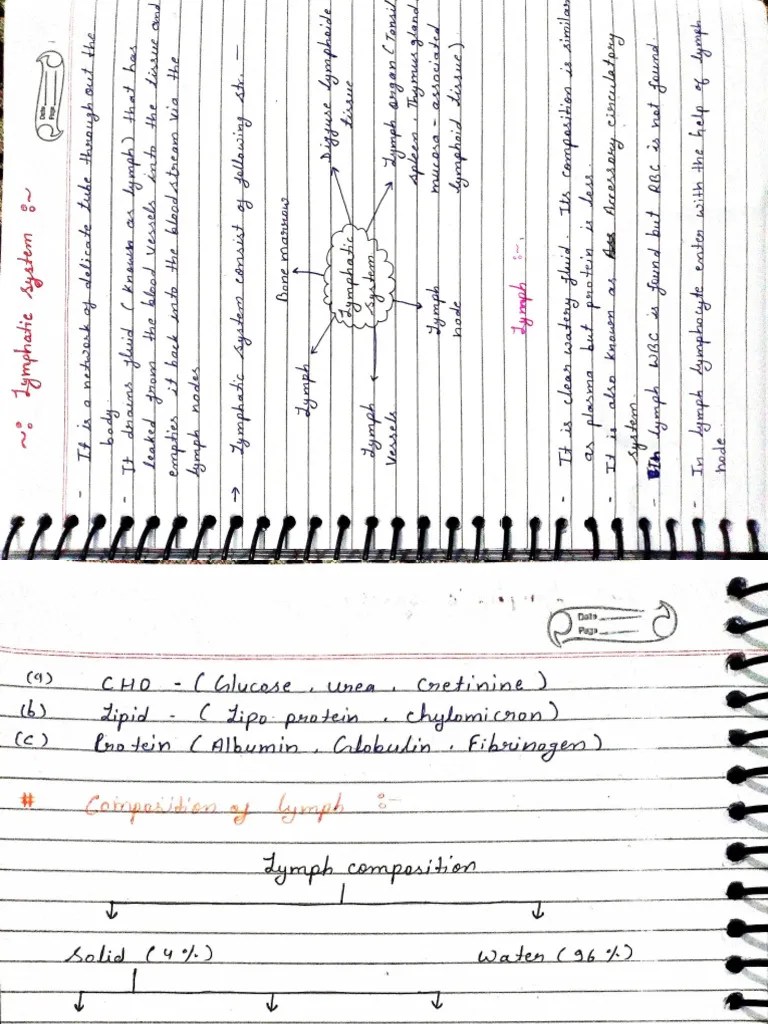 ~: Lymphatic system :~
Date
Page
- It is a network of delicate tube through out the
body.
- It drains fluid (known as lymph) that has
leaked from the blood vessels into the tissue and
empties it back into the bloodstream via the
lymph nodes
→ Lymphatic system consist of following str. -
Bone marrow
Lymph
Lymphatic
system
Diffuse lymphoide
tissue
Lymph organ (Tonsil
spleen, Thymus gland
mucosa - associated
lymphoid tissue)
Lymph
Vessels
Lymph
node
Lymph :-
- It is clear watery fluid. Its composition is similar
as plasma but protein is less.
- It is also known as Accessory circulatory
system.
- In lymph WBC is found but RBC is not found.
- In lymph lymphocyte enter with the help of lymph
node.
Date
Page
(a) CHO - (Glucose, urea, Cretinine)
(b) Lipid - (Lipo protein, chylomicron)
(c) Protein (Albumin, Globulin, Fibrinogen)
# Composition of lymph :-
Lymph composition
Solid (4%) Water (96%)